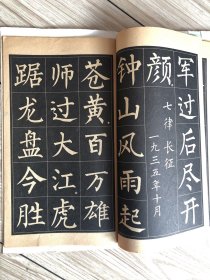 军过后尽开
颜
七律 长征
一九三五年十月
钟山风雨起
苍黄百万雄
师过大江虎
踞龙盘今胜